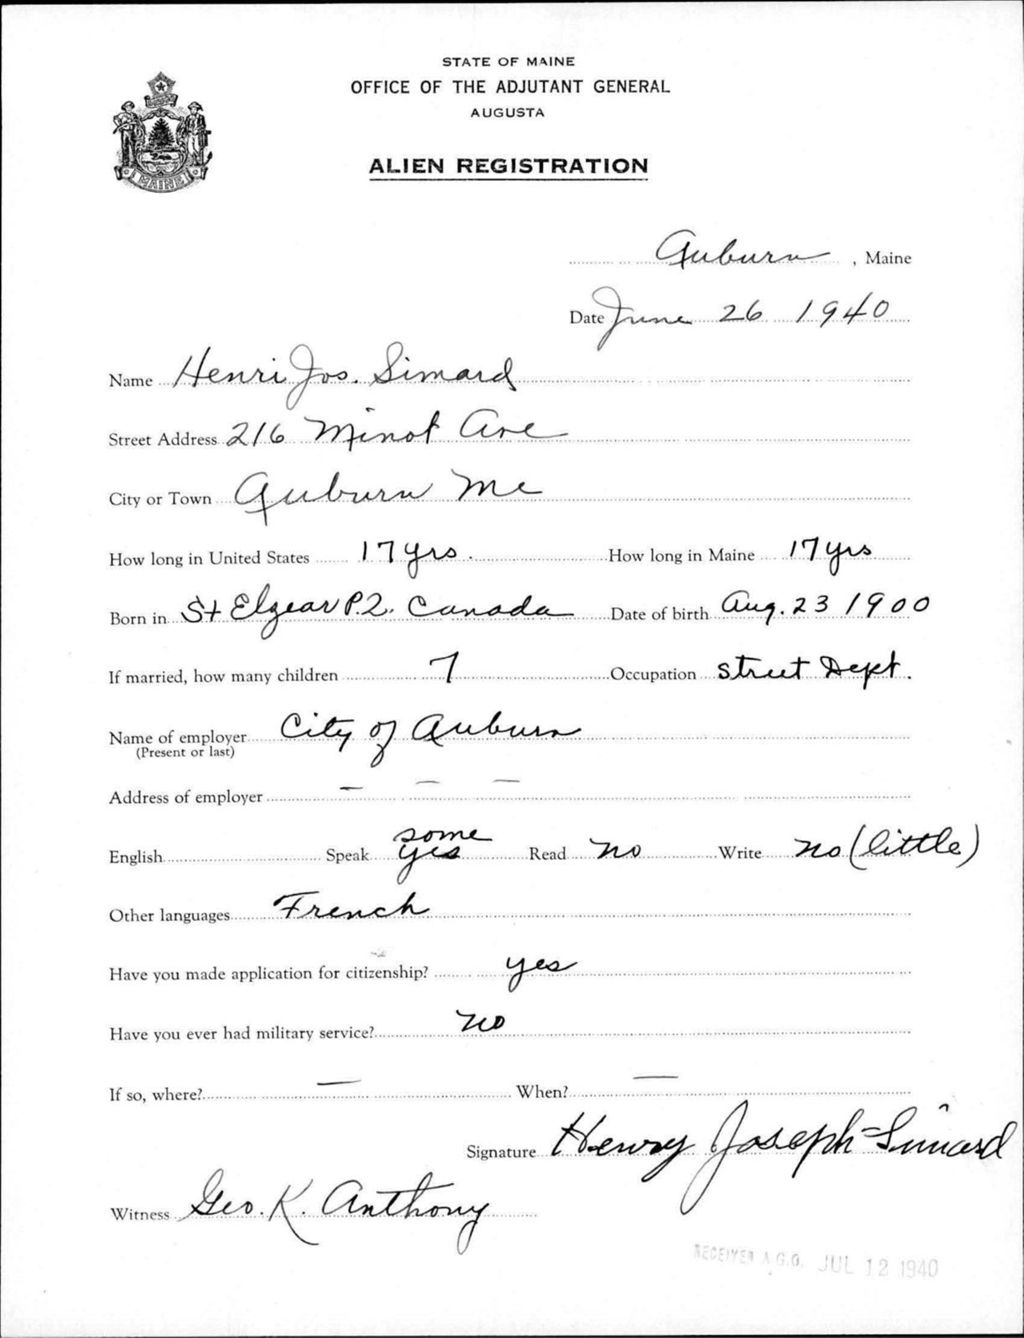 STATE OF MAINE
OFFICE OF THE ADJUTANT GENERAL
AUGUSTA
ALIEN REGISTRATION
MAINE
Auburn, Maine
Date June 26 1940
Name Henri Jos. Simard
Street Address 216 Minot Ave
City or Town Auburn Me
How long in United States 17 yrs. How long in Maine 17 yrs
Born in St Elgear P.2. Canada Date of birth Aug. 23 1900
If married, how many children 7 Occupation Street Dept.
Name of employer City of Auburn
(Present or last)
Address of employer — — —
some
English Speak yes Read No Write No (little)
Other languages French
Have you made application for citizenship? yes
Have you ever had military service? No
If so, where? — When? —
Signature Henry Joseph Simard
Witness Geo. K. Anthony
RECEIVED A.G.O. JUL 12 1940